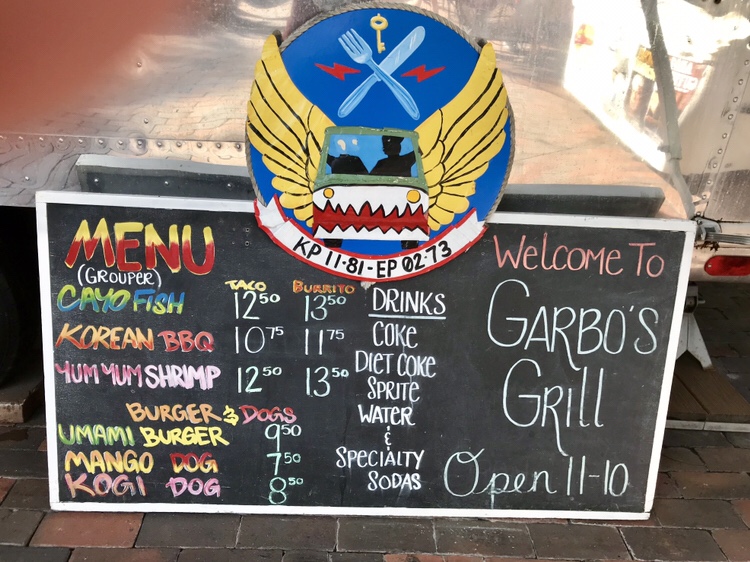 KP 11-81-EP 02-73
MENU
(GROUPER)
TACO BURRITO
CAYO FISH 12 50 13 50
KOREAN BBQ 10 75 11 75
YUM YUM SHRIMP 12 50 13 50
BURGER & DOGS
UMAMI BURGER 9 50
MANGO DOG 7 50
KOGI DOG 8 50
DRINKS
COKE
DIET COKE
SPRITE
WATER
&
SPECIALTY
SODAS
WELCOME TO
GARBO'S
GRILL
OPEN 11-10